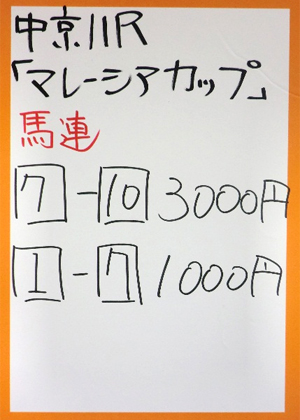 中京11R
「マレーシアカップ」
馬連
7-10 3000円
1-7 1000円